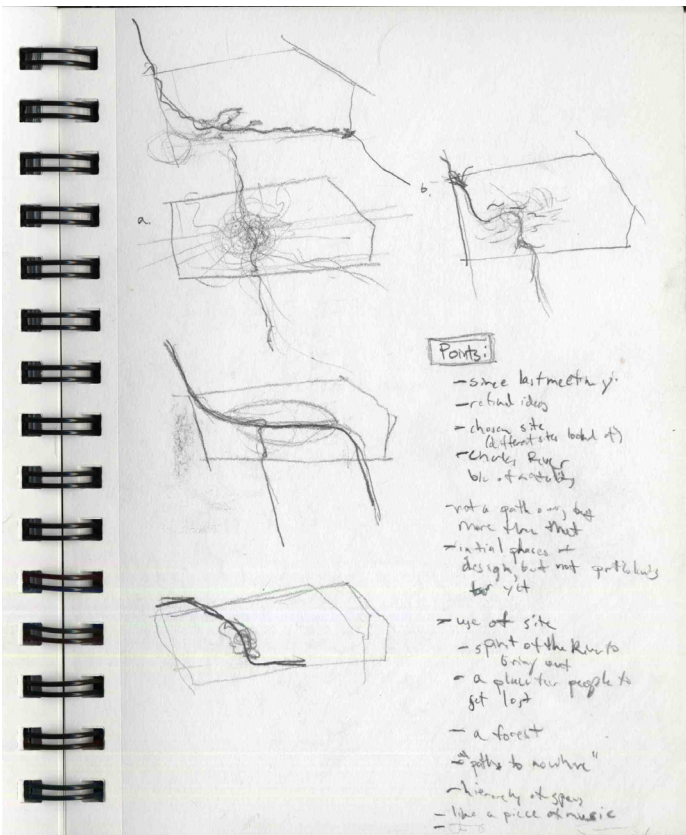 a.
b.
Points:
- since last meeting:
- refined ideas
- chosen site
(different sites looked at)
- Charles River
b/c of notability
- not a path only but
more than that
- initial phases of
design, but not
yet
- use of site
- spirit of the River to
bring out
- a place for people to
get lost
- a forest
- "paths to nowhere"
- hierarchy of spaces
- like a piece of music
-